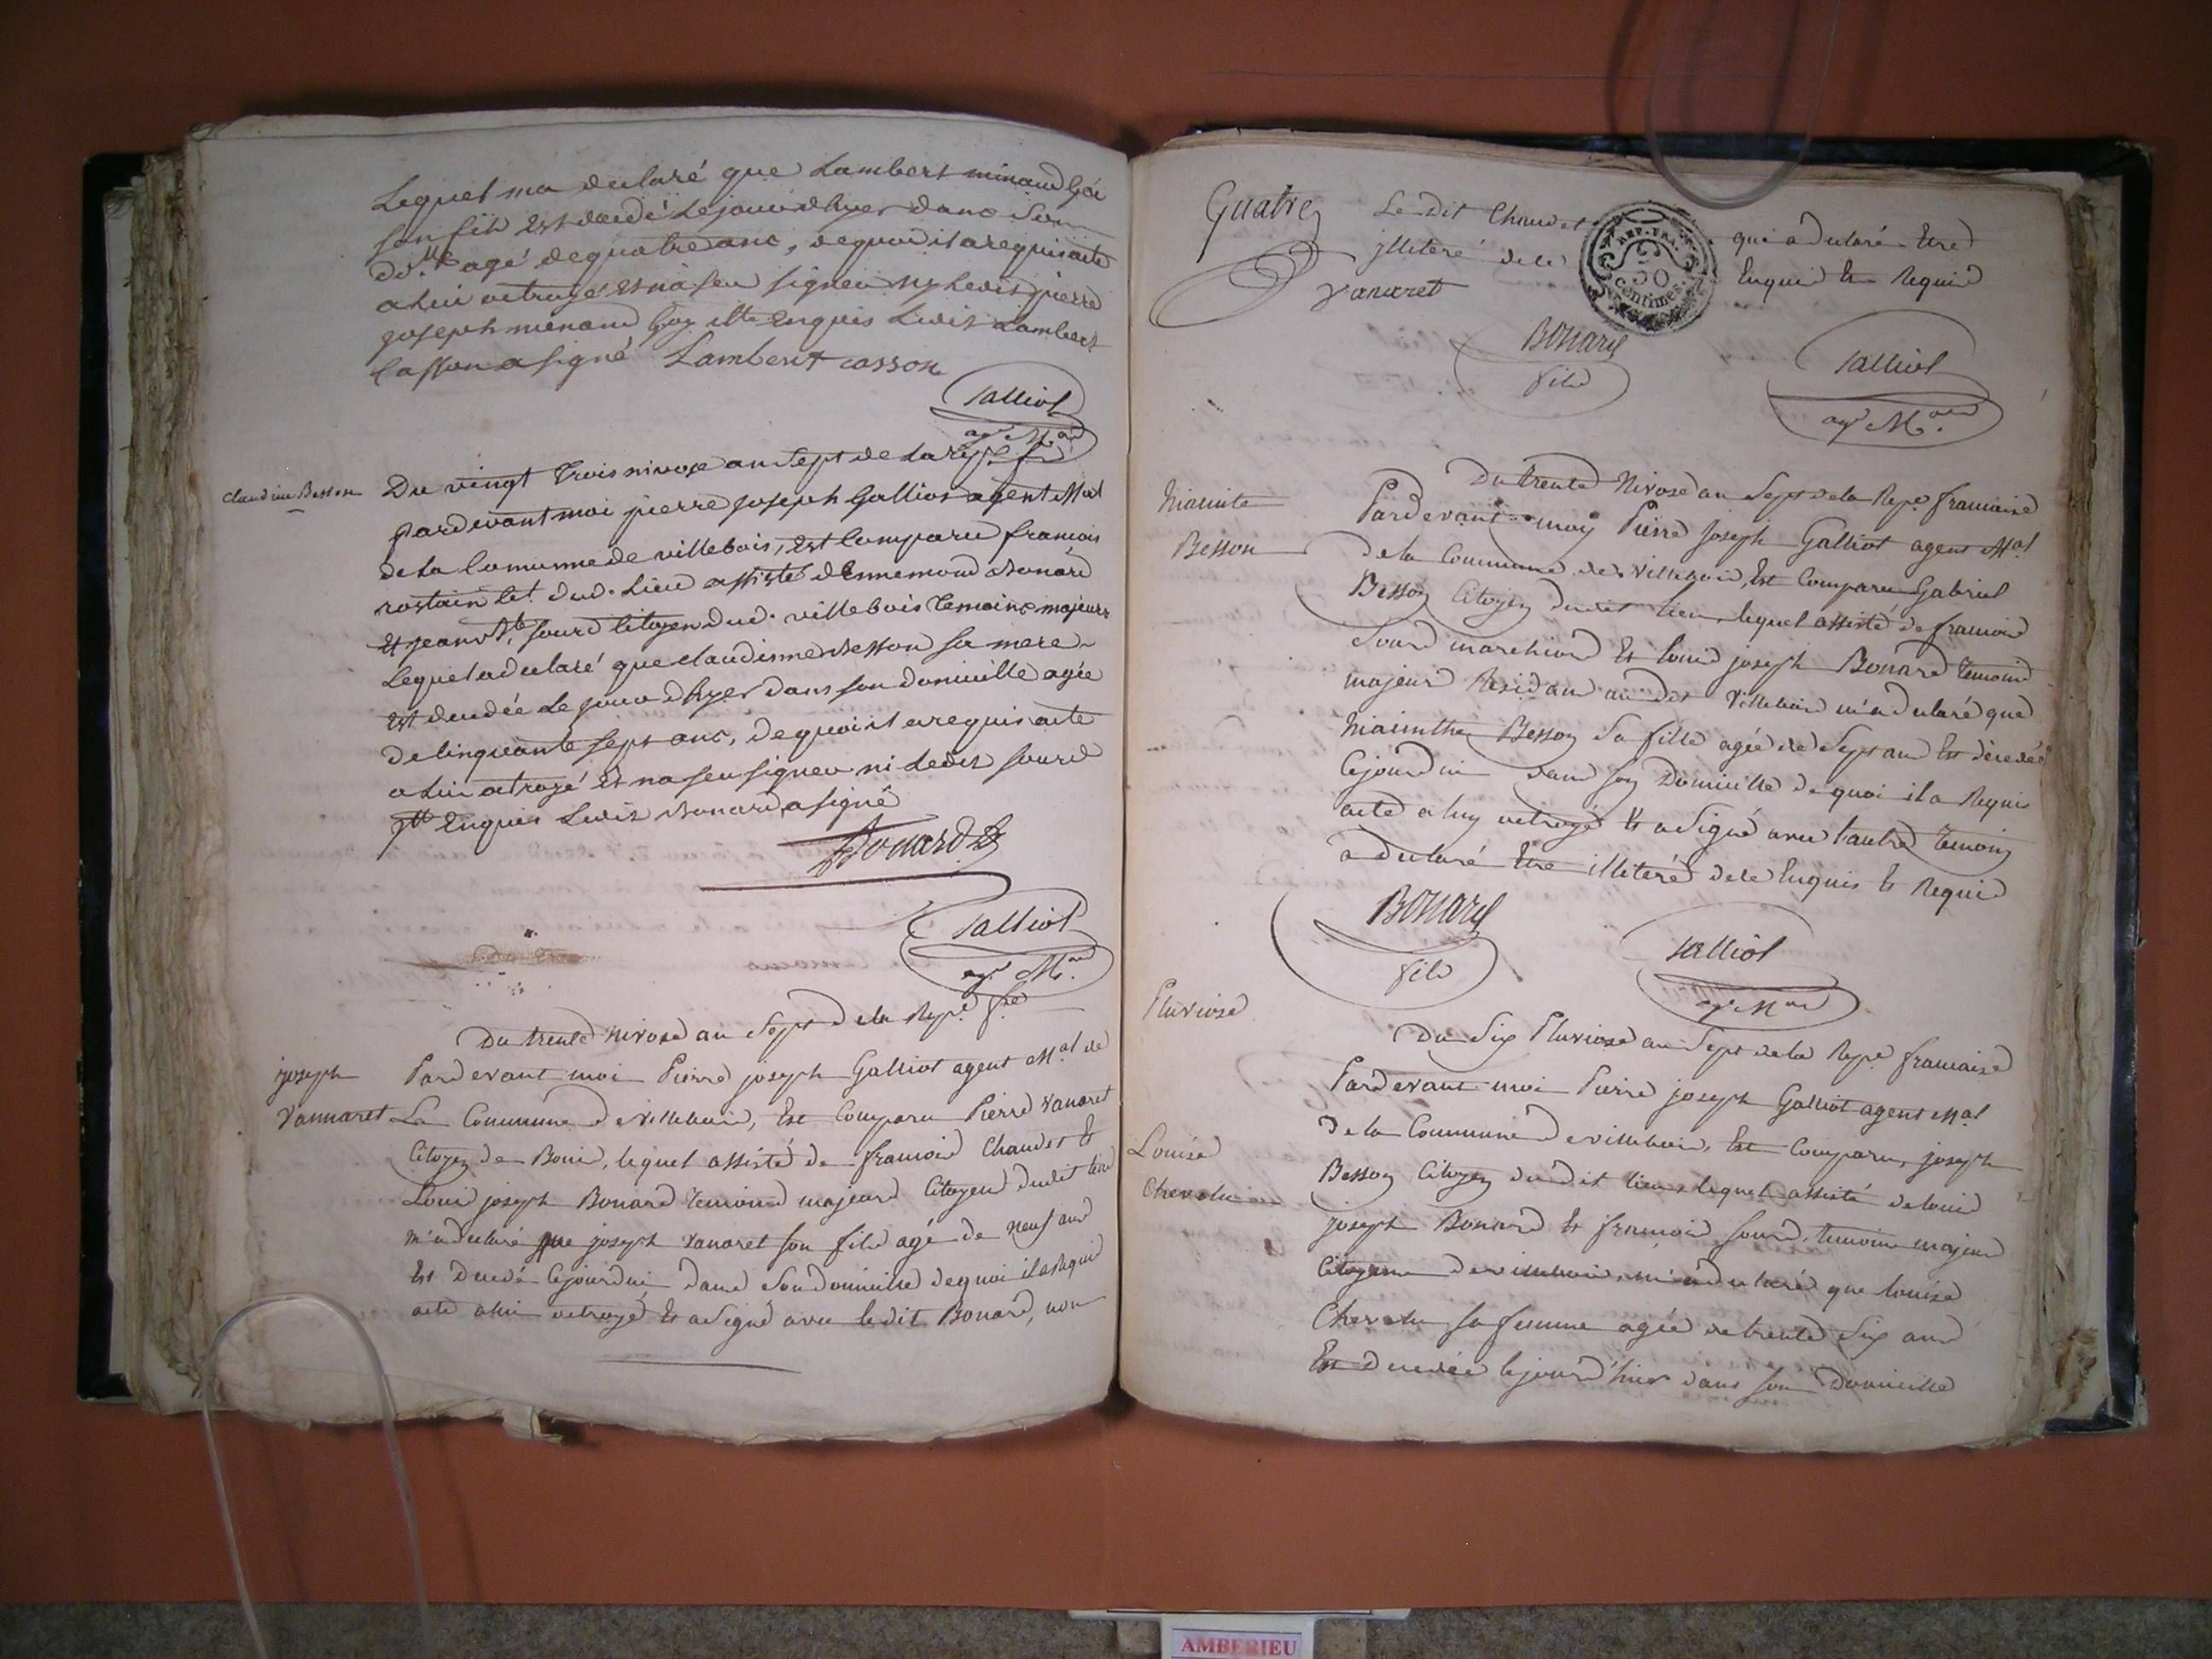 Lequel ma declaré que Lambert minand Goi
son fils Est decedé Le jour dhyer dans son
agé de quatre ans, de quoi il a requis acte
a lui octroyé et n'a seu signer ny Ledit pierre
joseph menand Goy Enquis Ledit Lambert
Casson a signé Lambert casson
Galliot
agt Mal
claudine Besson
Du vingt Trois nivose an sept de La rep. fr.
Pardevant moi pierre joseph Galliot agent Mal
de La Commune de villebois, est Comparu francois
rostain Cet. dud. Lieu assisté dEnnemond Bonard
Et jean Bte sourd Citoyen dud. villebois temoins majeurs
Lequel a declaré que claudinne Besson sa mere
Est decedée Le jour dhyer dans son domicille agée
de Cinquante sept ans, de quoi il a requis acte
a Lui octroyé Et na seu signer ni Ledit sourd
Enquis Ledit Bonard a signé
Bonard
Galliot
agt Mal
Du trente Nivose an Sept de la Repe fse
joseph
Vannaret
Pardevant moi Pierre joseph Galliot agent Mal de
La Commune de Villebois, Est Comparu Pierre Vanaret
Citoyen de Bouis, lequel assisté de francois Chaudet Et
Louis joseph Bonard temoins majeurs Citoyens dudit lieu
m'a declaré que joseph Vanaret son fils agé de neuf ans
Est decedé Cejourdui dans Son domicille de quoi il a Requis
acte a lui octroyé Et a Signé avec le dit Bonard, non
Quatre
Le dit Chaudet qui a declaré Etre
jlliteré de ce Enquis Et Requis
Vanaret
REP. FRA.
50
Centimes.
Bonard
fils
Galliot
agt Mal
Du trente Nivose an Sept de la Repe francaise
Niainite
Besson
Pardevant moy Pierre Joseph Galliot agent Mal
de la Commune de Villebois, Est Comparu Gabriel
Besson Citoyen dudit lieu, lequel assisté de francois
Sourd marchand Et Louis joseph Bonard temoins
majeurs Residans au dit Villebois m'a declaré que
Niainthe Besson Sa fille agée de Sept ans Est décedée
Cejourdui dans son Domicille de quoi il a Requis
acte a luy octroyé Et a Signé avec l'autre temoin
a declaré Etre illiteré de ce Enquis Et Requis
Bonard
fils
Galliot
agt Mal
Pluviose
Du Six Pluviose an Sept de la Repe francaise
Pardevant moi Pierre joseph Galliot agent Mal
de la Commune de villebois, Est Comparu, joseph
Louise
Chevelu
Besson Citoyen du dit lieu, lequel assisté de louis
joseph Bonard Et francois sourd, temoins majeurs
Citoyens de villebois, m'a declaré que louise
Chevelu sa femme agée de trente Six ans
Est decedée le jour d'hier dans son Domicille
AMBERIEU